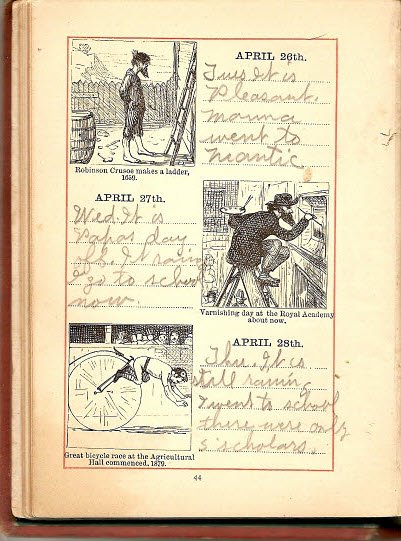 APRIL 26th.
Tues It is
Pleasant.
Mama
went to
Niantic
Robinson Crusoe makes a ladder,
1659.
APRIL 27th.
Wed It is
Papas day
off. It rains
I go to school
now.
Varnishing day at the Royal Academy
about now.
APRIL 28th.
Thu. It is
still rainin
I went to school
there were only
5 scholars.
Great bicycle race at the Agricultural
Hall commenced, 1879.
44